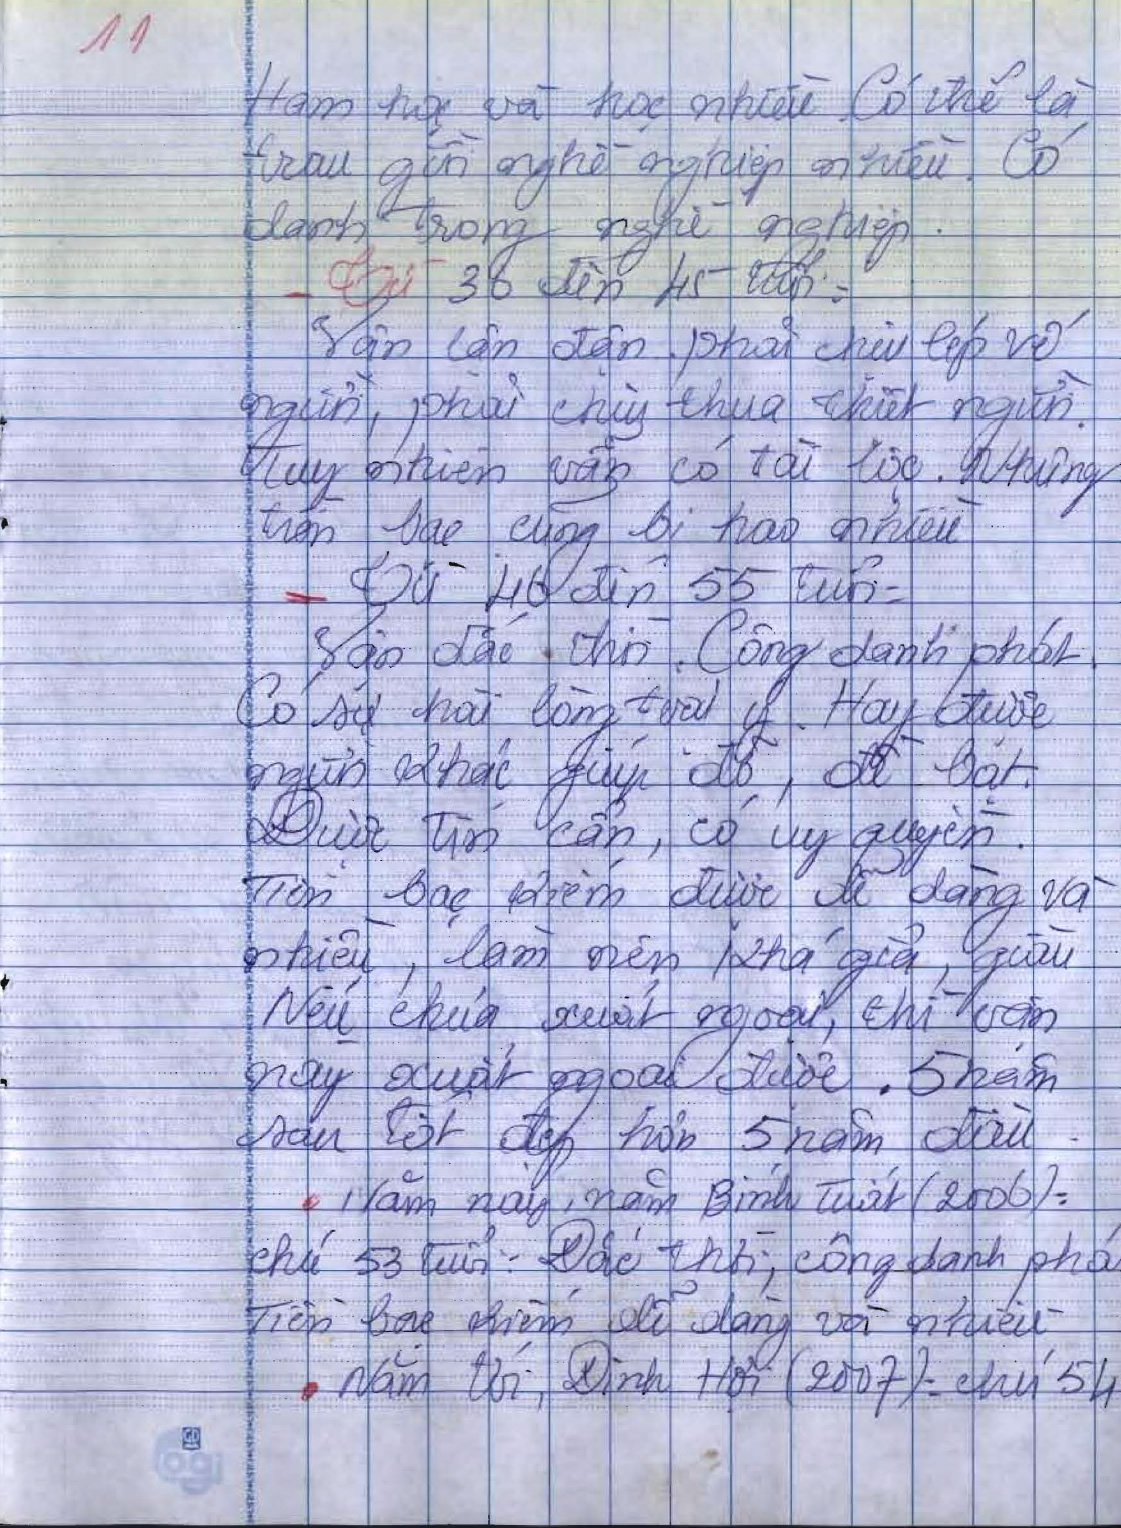 11
Ham học và học nhiều. Có thể là
trau giồi nghề nghiệp nhiều. Có
danh trong nghề nghiệp.
- Từ 36 đến 45 tuổi:
Vận lận đận. phải chịu lép vế
người, phải chịu thua thiệt người.
Tuy nhiên vẫn có tài lộc. Nhưng
tiền bạc cũng bị hao nhiều
- Từ 46 đến 55 tuổi:
Vận đắc thời. Công danh phát.
Có sự hài lòng toại ý. Hay được
người khác giúp đỡ, đề bạt.
Được tín cẩn, có uy quyền.
Tiền bạc kiếm được dễ dàng và
nhiều, làm nên khá giả, giàu
Nếu chưa xuất ngoại, thì vận
này xuất ngoại được. 5 năm
sau tốt đẹp hơn 5 năm đầu.
• Năm này, năm Bính Tuất (2006):
chú 53 tuổi: Đắc thời, công danh phá
Tiền bạc kiếm dễ dàng và nhiều
• Năm tới, Đinh Hợi (2007): chú 54